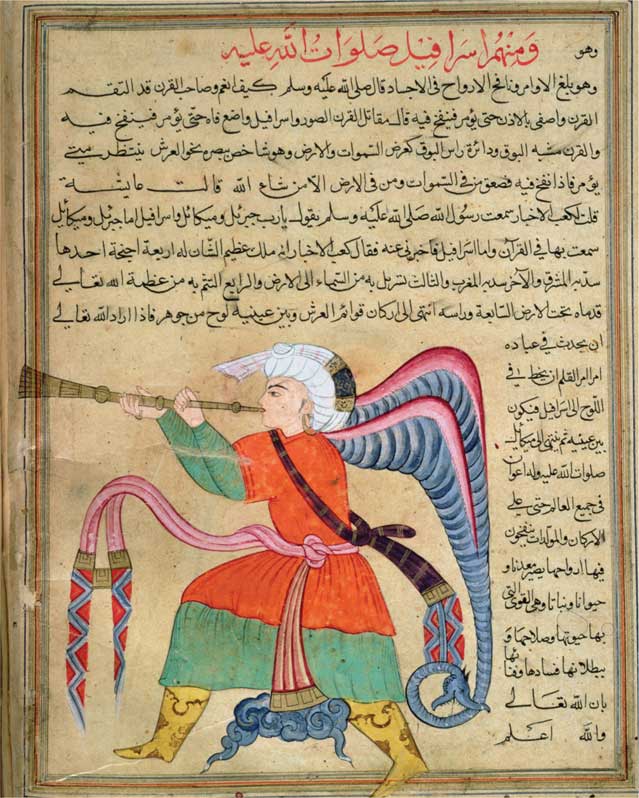 ومنهم اسرافيل صلوات الله عليه
وهو
وهو يبلغ الاوامر ونافخ الارواح فى الاجساد قال صلى الله عليه وسلم كيف انعم وصاحب القرن قد التقم
القرن واصغى بالاذن حتى يؤمر فينفخ فيه قال مقاتل القرن الصور واسرافيل واضع فاه حتى يؤمر فينفخ فيه
والقرن شبه البوق ودائرة راس البوق كعرض السموات والارض وهو شاخص بصره نحو العرش ينتظر متى
يؤمر فاذا انفخ فيه فصعق من فى السموات ومن فى الارض الا من شاء الله قالت عايشة
قلت لكعب الاخبار سمعت رسول الله صلى الله عليه وسلم يقول يا رب جبرئيل وميكائل واسرافيل اما جبرئل وميكائل
سمعت بها فى القرآن واما اسرافيل فاخبرنى عنه فقال كعب الاخبار انه ملك عظيم الشان له اربعة اجنحة احدها
سد به المشرق والآخر سد به المغرب والثالث تسربل به من السماء الى الارض والرابع التثم به من عظمة الله تعالى
قدماه تحت الارض السابعة وراسه انتهى الى اركان قوائم العرش وبين عينيه لوح من جوهر فاذا اراد الله تعالى
ان يحدث فى عباده
امرا امر القلم ان يخط فى
اللوح الى اسرافيل فيكون
بين عينيه ثم ينتهى الى ميكائل
صلوات الله عليه وله اعوان
فى جميع العالم حتى على
الاركان والمولدات ينفخون
فيها ارواحها يصير معدنا و
حيوانا ونباتا وهى القوى التى
بها حيوتها وصلاحها و
بطلانها فسادها وفنائها
بان الله تعالى
والله اعلم